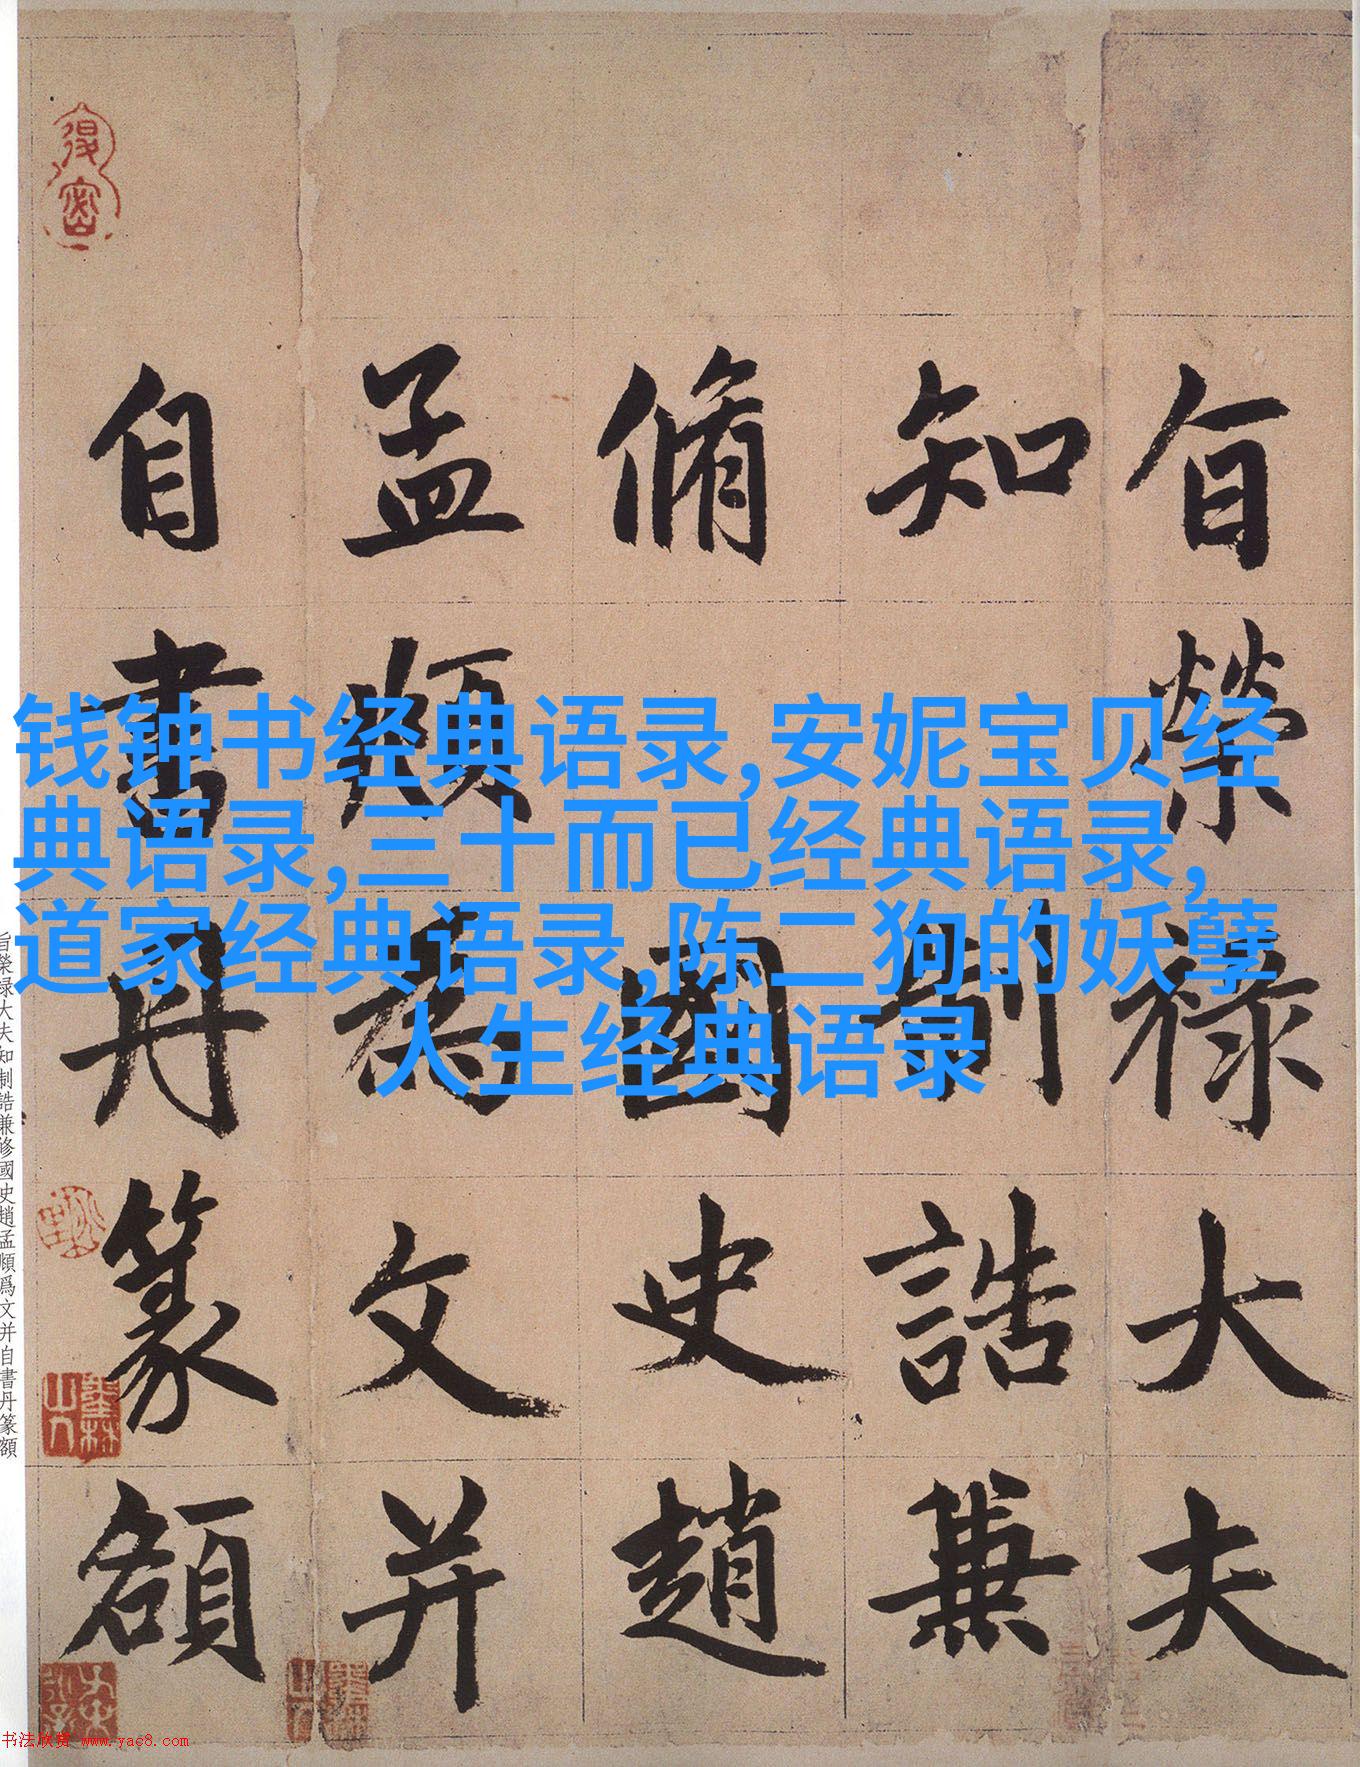 钱钟书经典语录,安妮宝贝经
典语录,三十而已经典语录,
道家经典语录,陈二狗的妖孽
人生经典语录
旨榮祿大夫
知制誥兼
脩國史趙
孟頫為文并
自書丹篆額
旨榮禄大夫知制誥兼修國史趙孟頫爲文并自書丹篆額
书法欣赏 www.yac8.com